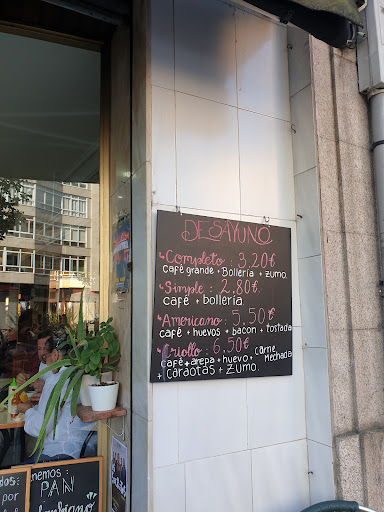 DESAYUNO
Completo = 3,20€
café grande + Bollería + zumo.
Simple = 2,80€.
café + bollería
Americano = 5,50€
café + huevos + bacon + tostada
Criollo = 6,50€
café + arepa + huevo + carne mechada
+ caraotas + zumo.
enemos:
PAN
dos:
por